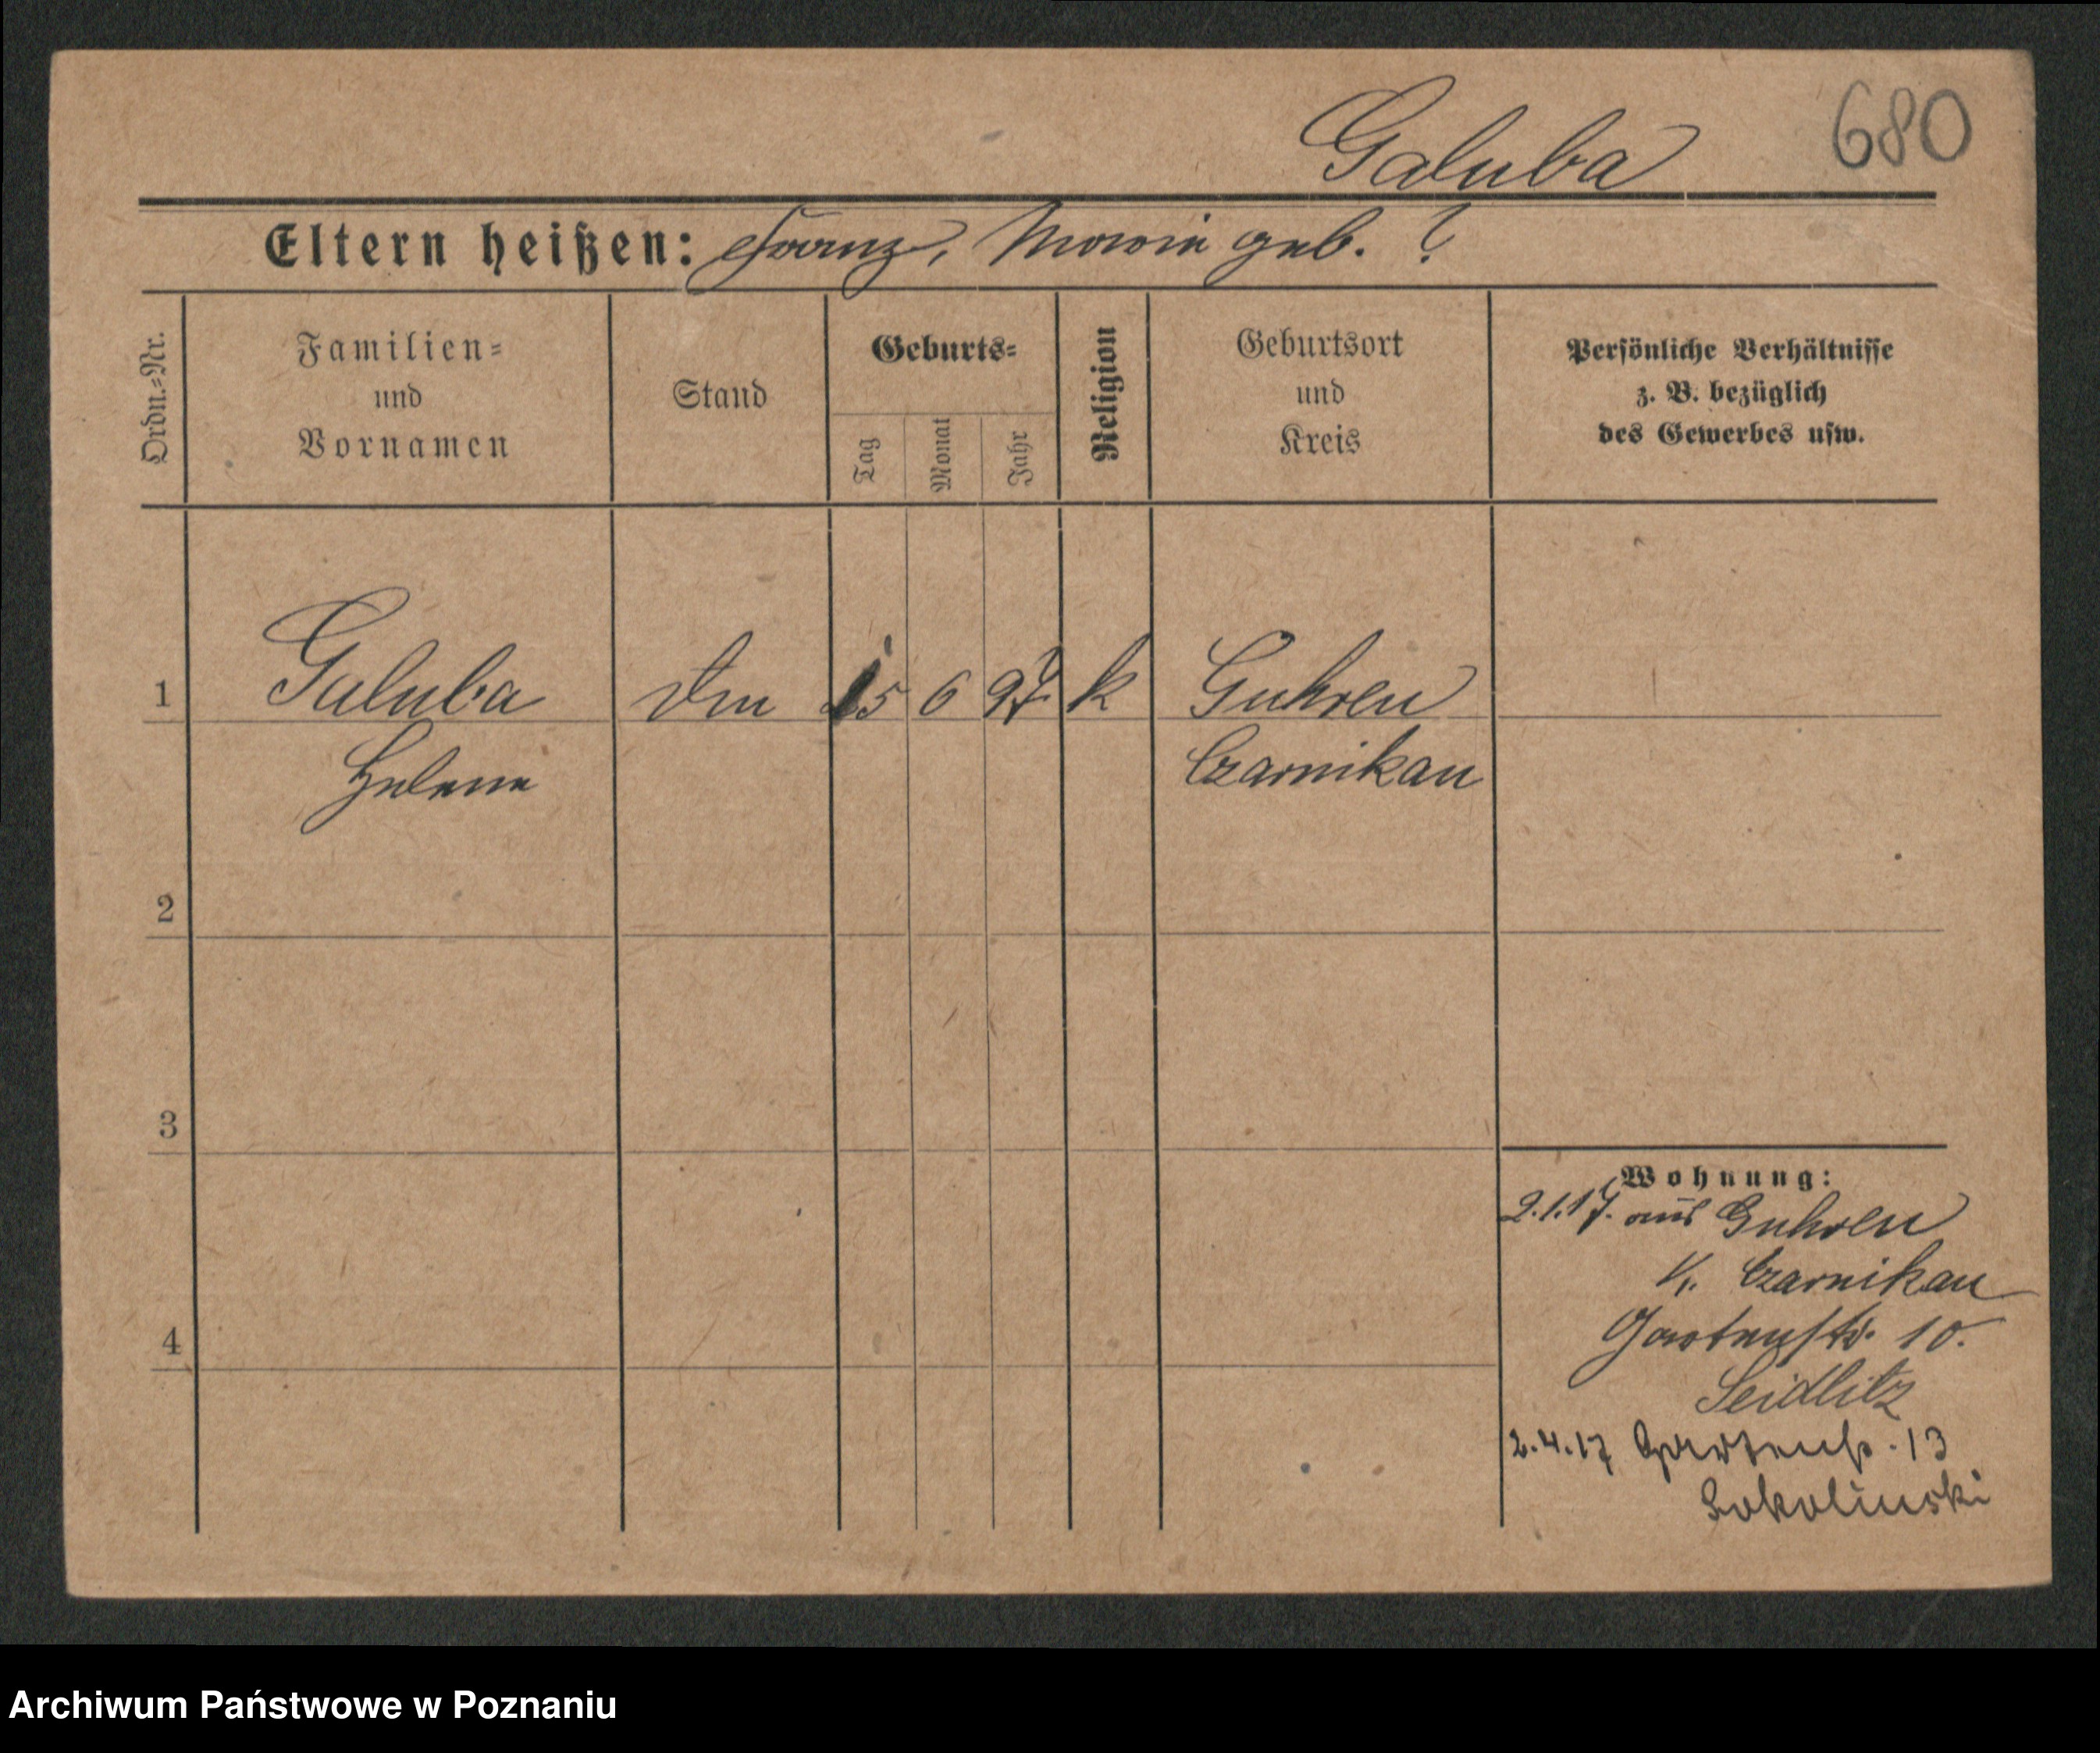 680
Galuba
Eltern heißen: Franz, Marie geb. ?
Ordn.-Nr.
Familien-
und
Vornamen
Stand
Geburts-
Tag
Monat
Jahr
Religion
Geburtsort
und
Kreis
Persönliche Verhältnisse
z. B. bezüglich
des Gewerbes usw.
1 Galuba 15 6 97 k Guhren
Helene Czarnikau
2
3
4
Wohnung:
2.1.17. aus Guhren
K. Czarnikau
Gartenstr. 10.
Seidlitz
2.4.17 Gartenstr. 13
Sokolinski
Archiwum Państwowe w Poznaniu